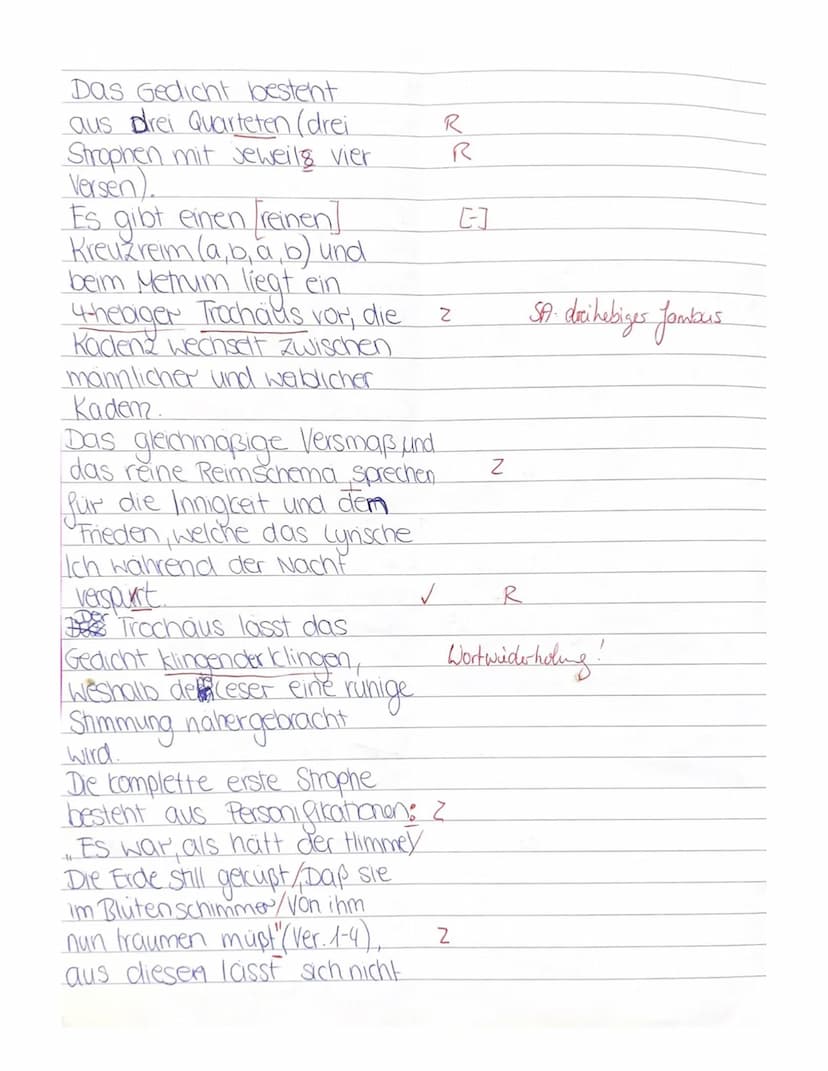 Das Gedicht besteht
aus drei Quarteten (drei R
Strophen mit jeweils vier R
Versen).
Es gibt einen [reinen] [-]
Kreuzreim (a,b,a,b) und
beim Metrum liegt ein
4-hebiger Trochäus vor, die Z SA: dreihebiger Jambus
Kadenz wechselt zwischen
männlicher und weiblicher
Kadenz.
Das gleichmäßige Versmaß und
das reine Reimschema sprechen Z
für die Innigkeit und dem
Frieden, welche das Lyrische
Ich während der Nacht
verspürt. ✓ R
Der Trochäus lässt das
Gedicht klingender klingen, Wortwiederholung!
weshalb der Leser eine ruhige
Stimmung nähergebracht
wird.
Die komplette erste Strophe
besteht aus Personifikationen: Z
„Es war, als hätt der Himmel/
Die Erde still geküßt/, Daß sie
im Blütenschimmer/Von ihm
nun träumen müßt" (Ver. 1-4), Z
aus diesen lässt sich nicht